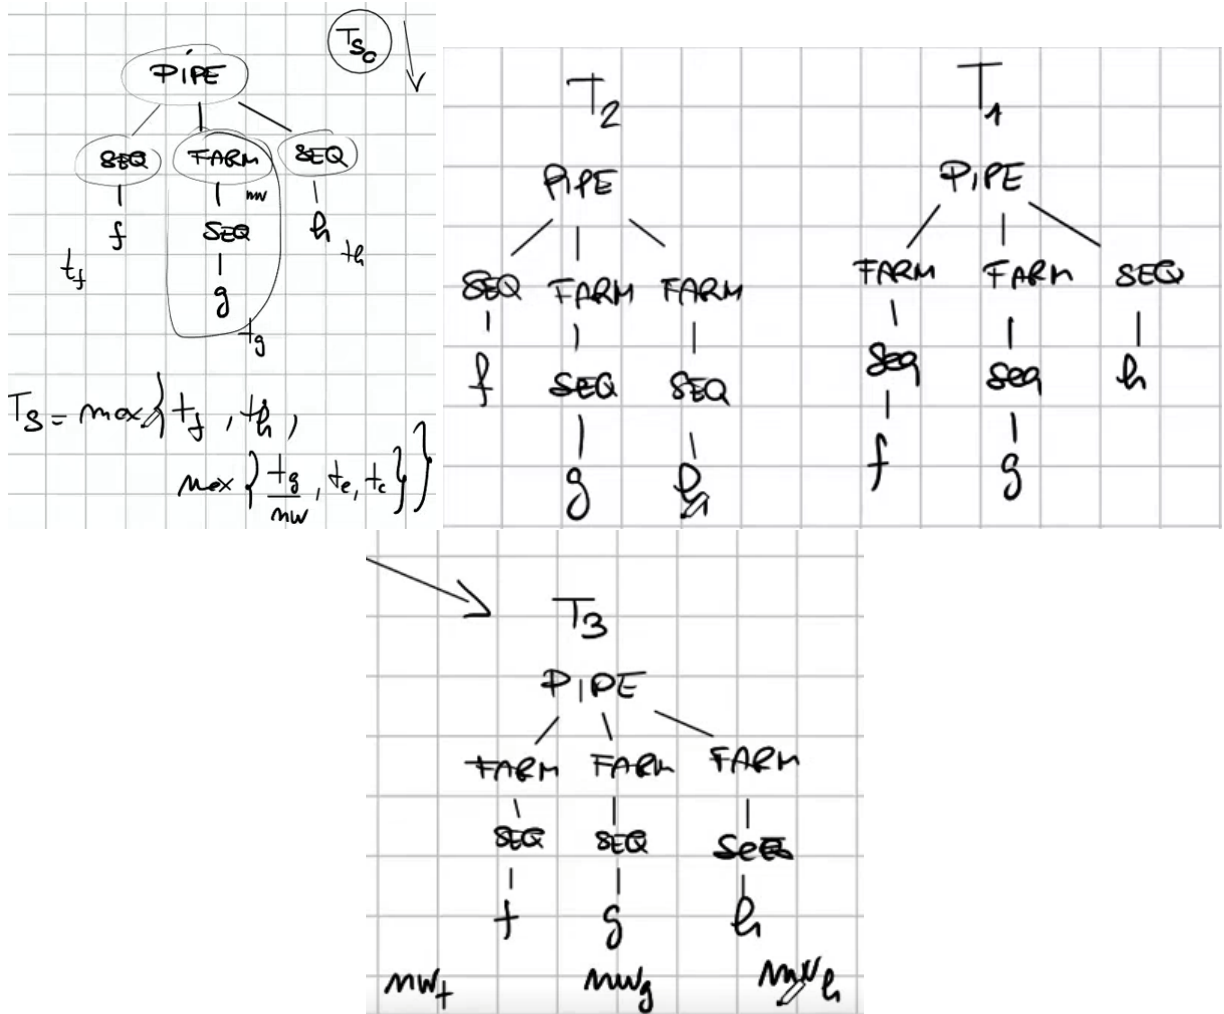 Ts0
PIPE
SEQ FARM SEQ
nw
f SEQ h
tf th
g
tg
Ts = max { tf , th ,
max { tg/nw , te , tc } }
T2
PIPE
SEQ FARM FARM
f SEQ SEQ
g h
T1
PIPE
FARM FARM SEQ
Seq Seq h
f g
T3
PIPE
FARM FARM FARM
SEQ SEQ SEQ
f g h
nwf nwg nwh